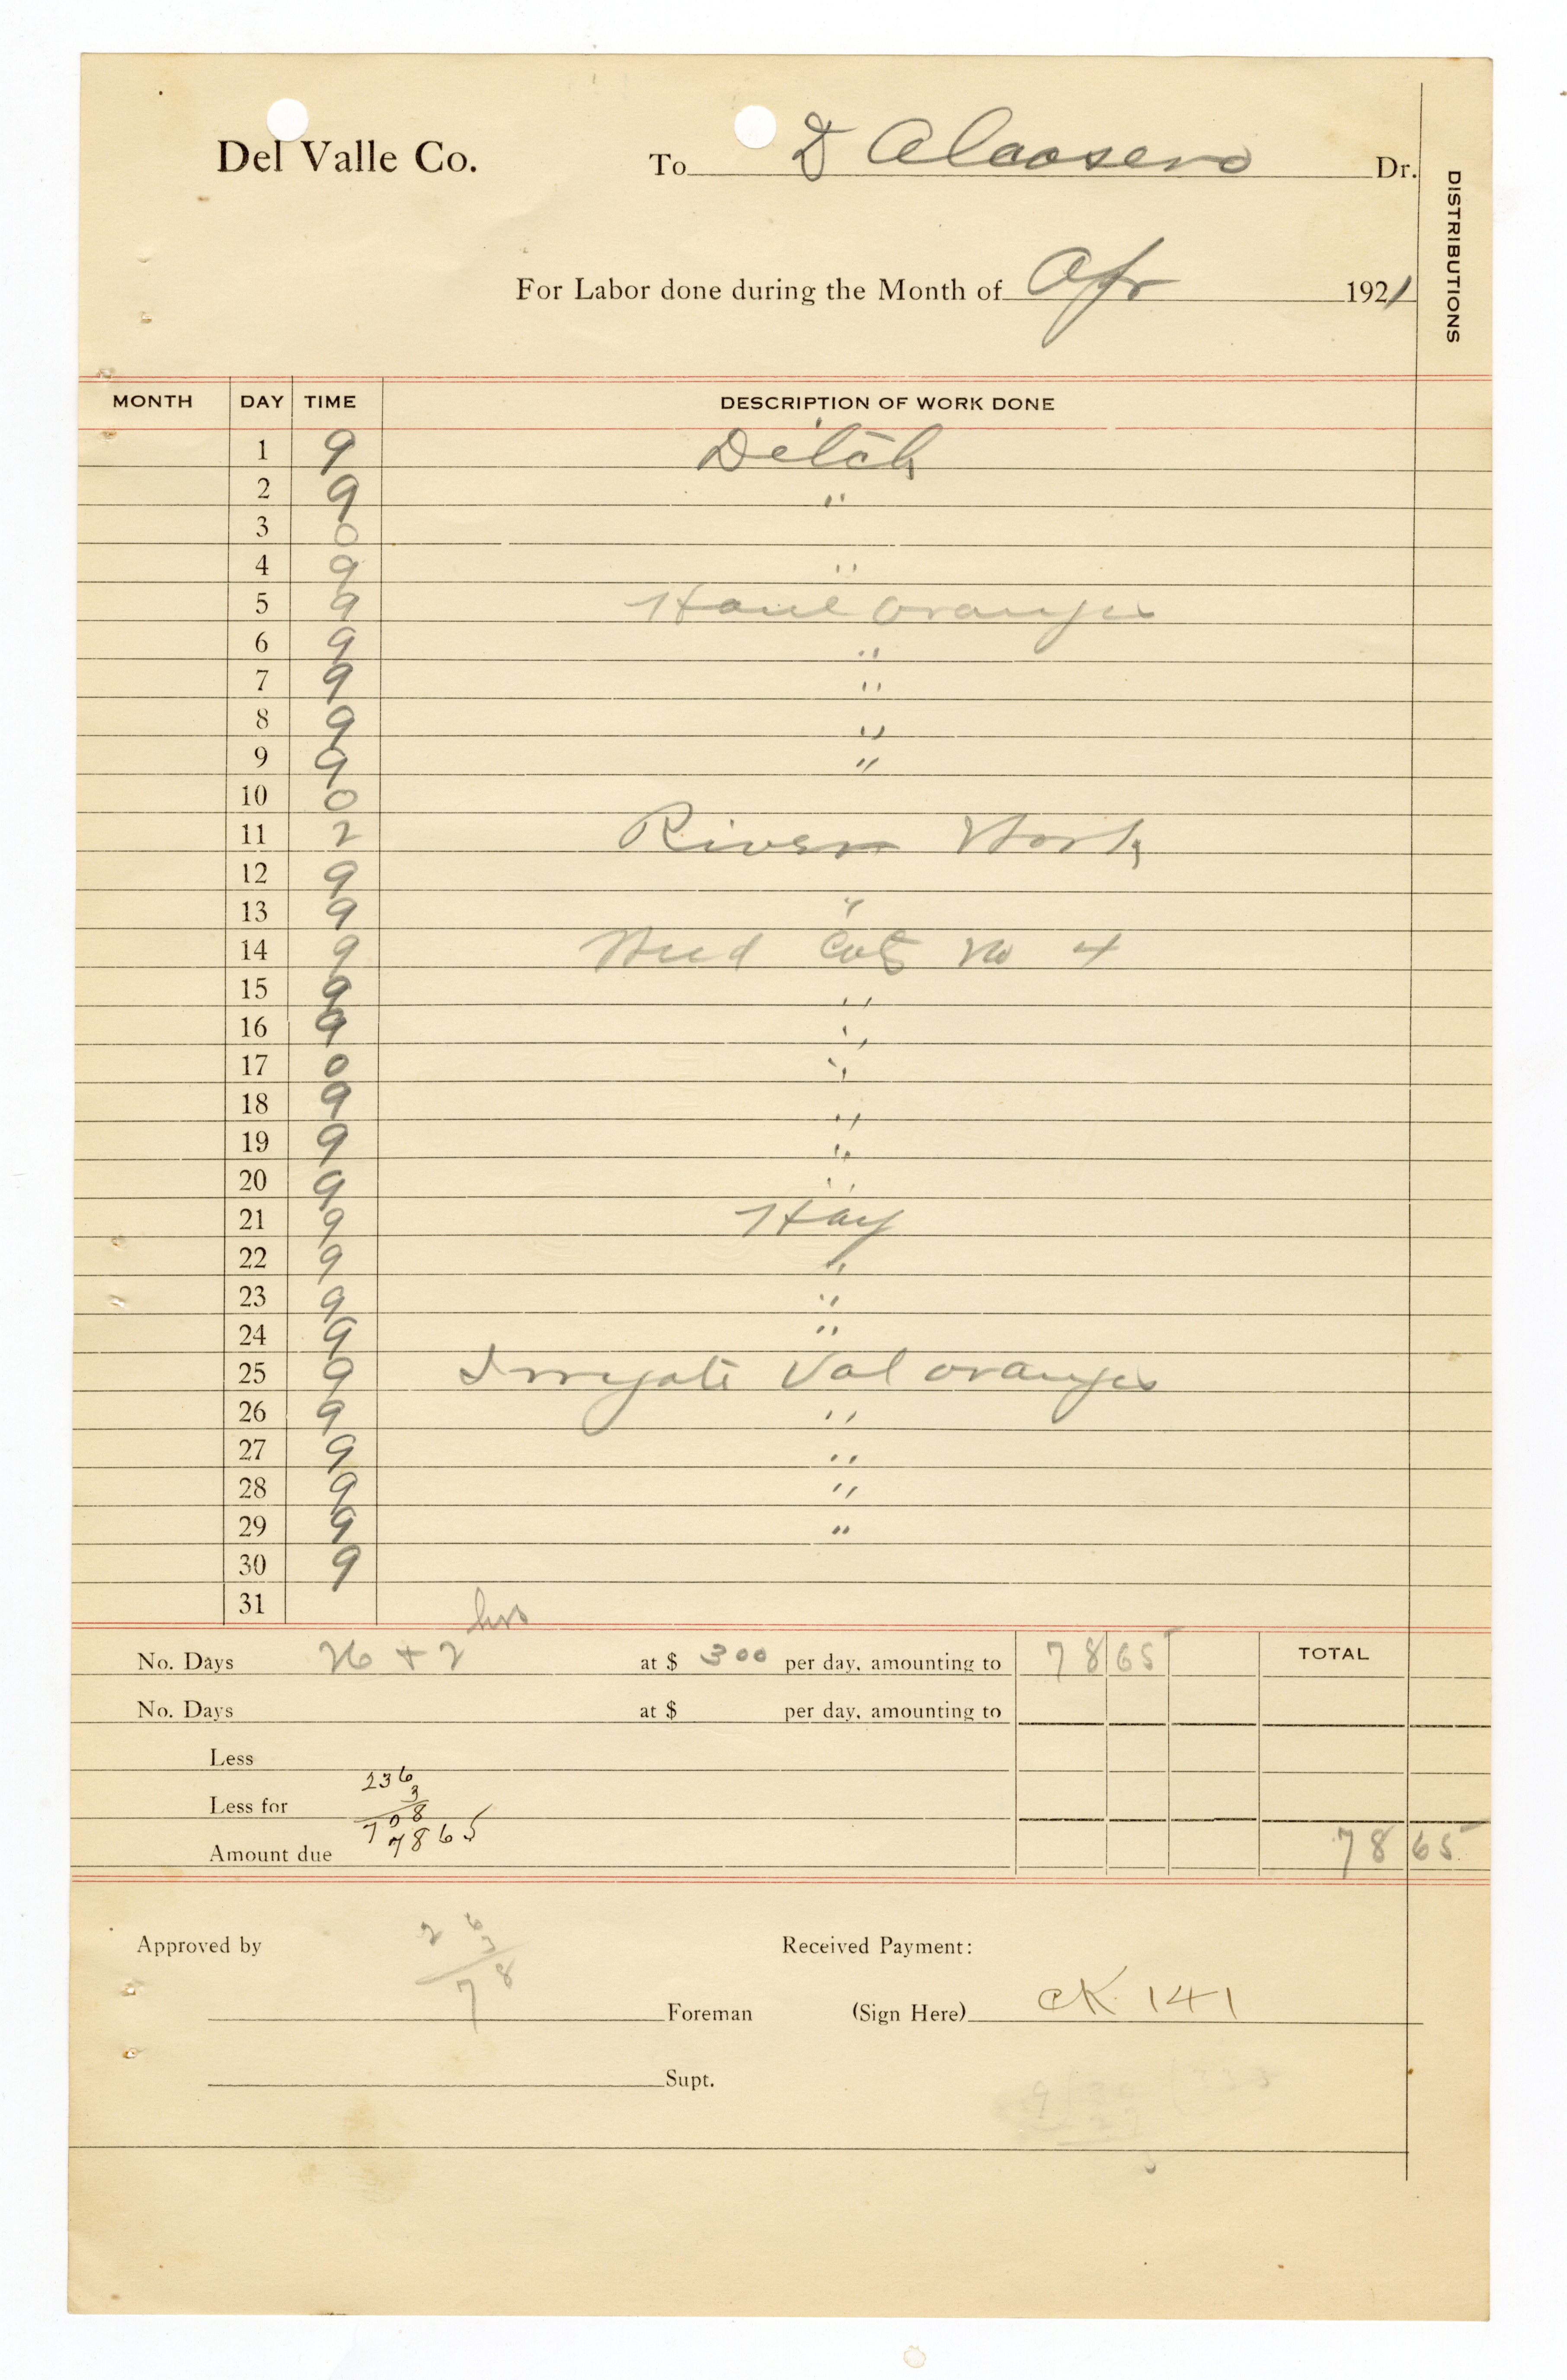 Del Valle Co. To D Alaosero Dr.
DISTRIBUTIONS
For Labor done during the Month of Apr 1921
MONTH DAY TIME DESCRIPTION OF WORK DONE
1 9 Ditch
2 9 "
3 0
4 9 "
5 9 Haul oranges
6 9 "
7 9 "
8 9 "
9 9 "
10 0
11 2 River Work
12 9
13 9 "
14 9 Weed Cut No 4
15 9 "
16 9 "
17 0 "
18 9 "
19 9 "
20 9 "
21 9 Hay
22 9 "
23 9 "
24 9 "
25 9 Irrygate Val oranges
26 9 "
27 9 "
28 9 "
29 9 "
30 9
31
No. Days 26 + 2 hrs at $ 300 per day, amounting to 78 65 TOTAL
No. Days at $ per day, amounting to
Less
236
3
Less for 708
7865
Amount due 78 65
26
3
Approved by Received Payment:
78
Foreman (Sign Here) CK 141
Supt.